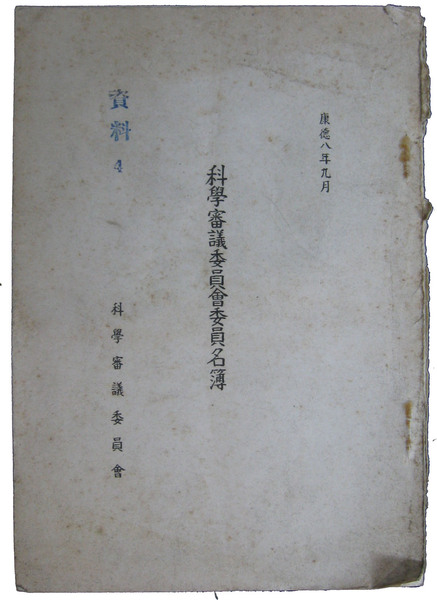 康德八年九月
科學審議委員會委員名簿
資料4
科學審議委員會